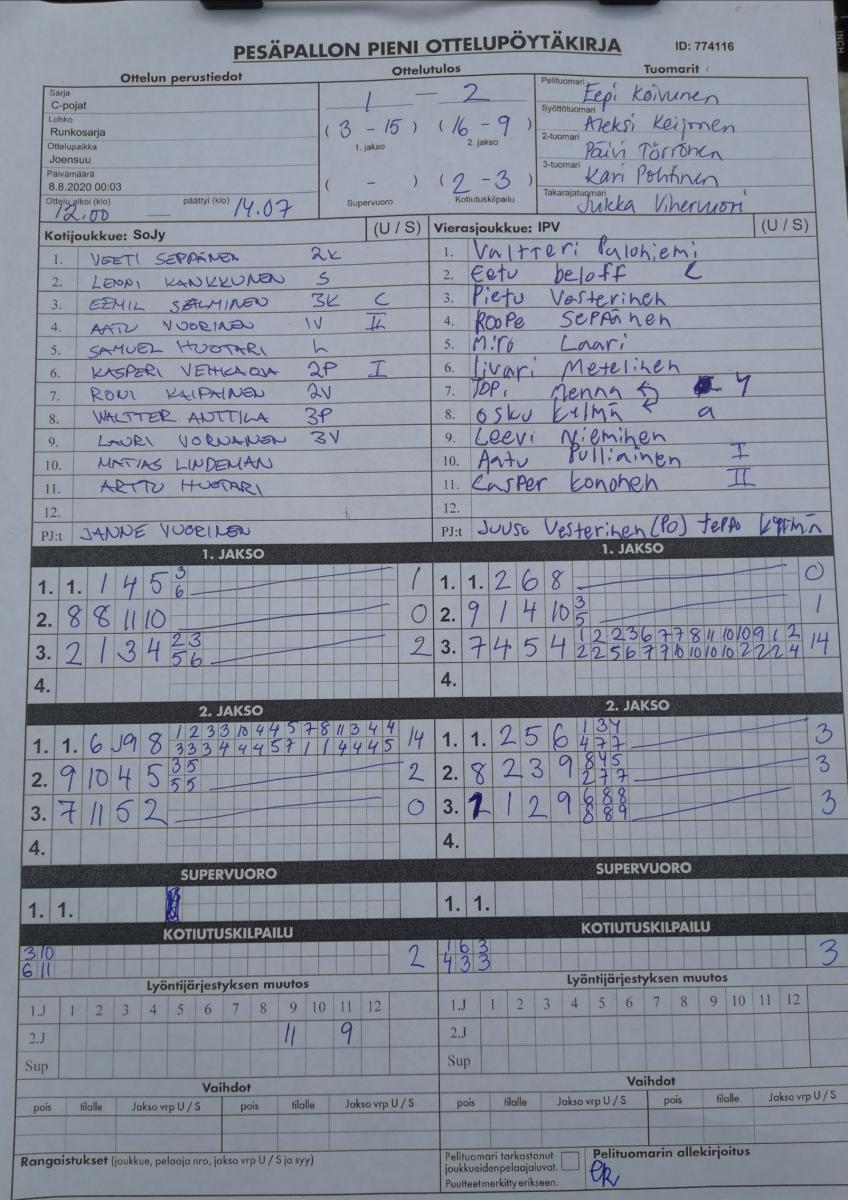 PESÄPALLON PIENI OTTELUPÖYTÄKIRJA
ID: 774116
Ottelun perustiedot
Sarja
C-pojat
Lohko
Runkosarja
Ottelupaikka
Joensuu
Päivämäärä
8.8.2020 00:03
Ottelu alkoi (klo) päättyi (klo)
12.00 — 14.07
Ottelutulos
1 — 2
( 3 - 15 ) ( 16 - 9 )
1. jakso 2. jakso
( - ) ( 2 - 3 )
Supervuoro Kotiutuskilpailu
Tuomarit
Pelituomari
Eepi Koivunen
Syöttötuomari
Aleksi Keijonen
2-tuomari
Päivi Törrönen
3-tuomari
Kari Pohtinen
Takarajatuomari
Jukka Vihervuori
Kotijoukkue: SoJy (U / S)
1. VEETI SEPPÄNEN 2K
2. LENNI KANKKUNEN S
3. EEMIL SALMINEN 3K C
4. AATU VUORINEN 1V II
5. SAMUEL HUOTARI L
6. KASPERI VEHKAOJA 2P I
7. RONI KAIPAINEN 2V
8. WALTTER ANTTILA 3P
9. LAURI VORNANEN 3V
10. MATIAS LINDEMAN
11. ARTTU HUOTARI
12.
PJ:t JANNE VUORINEN
Vierasjoukkue: IPV (U / S)
1. Valtteri Palohiemi
2. Eetu beloff C
3. Pietu Vesterinen
4. Roope Seppänen
5. Miro Laari
6. Iivari Metelinen
7. Topi Menna 4
8. Osku Kylmä a
9. Leevi Nieminen
10. Aatu Pulliainen I
11. Casper Konohen II
12.
PJ:t Juuso Vesterinen (PO) teppo kylmä
1. JAKSO
1. 1. 1 4 5 3 1
6
2. 8 8 11 10 0
3. 2 1 3 4 2 3 2
5 6
4.
1. JAKSO
1. 1. 2 6 8 0
2. 9 1 4 10 3 1
5
3. 7 4 5 4 1 2 2 3 6 7 7 8 11 10 10 9 1 2 14
2 2 5 6 7 7 10 10 10 10 2 2 2 4
4.
2. JAKSO
1. 1. 6 9 8 1 2 3 3 10 4 4 5 7 8 11 3 4 4 14
3 3 3 4 4 4 5 7 1 1 4 4 4 5
2. 9 10 4 5 3 5 2
5 5
3. 7 11 5 2 0
4.
2. JAKSO
1. 1. 2 5 6 1 3 4 3
4 7 7
2. 8 2 3 9 8 4 5 3
2 7 7
3. 1 1 2 9 6 8 8 3
8 8 9
4.
SUPERVUORO
1. 1.
SUPERVUORO
1. 1.
KOTIUTUSKILPAILU
3 10 2
6 11
KOTIUTUSKILPAILU
1 6 3 3
4 3 3
Lyöntijärjestyksen muutos
1.J 1 2 3 4 5 6 7 8 9 10 11 12
2.J 11 9
Sup
Lyöntijärjestyksen muutos
1.J 1 2 3 4 5 6 7 8 9 10 11 12
2.J
Sup
Vaihdot
pois tilalle Jakso vrp U / S pois tilalle Jakso vrp U / S
Vaihdot
pois tilalle Jakso vrp U / S pois tilalle Jakso vrp U / S
Rangaistukset (joukkue, pelaaja nro, jakso vrp U / S ja syy)
Pelituomari tarkastanut
joukkueiden pelaajaluvat.
Puutteet merkitty erikseen.
Pelituomarin allekirjoitus
EK